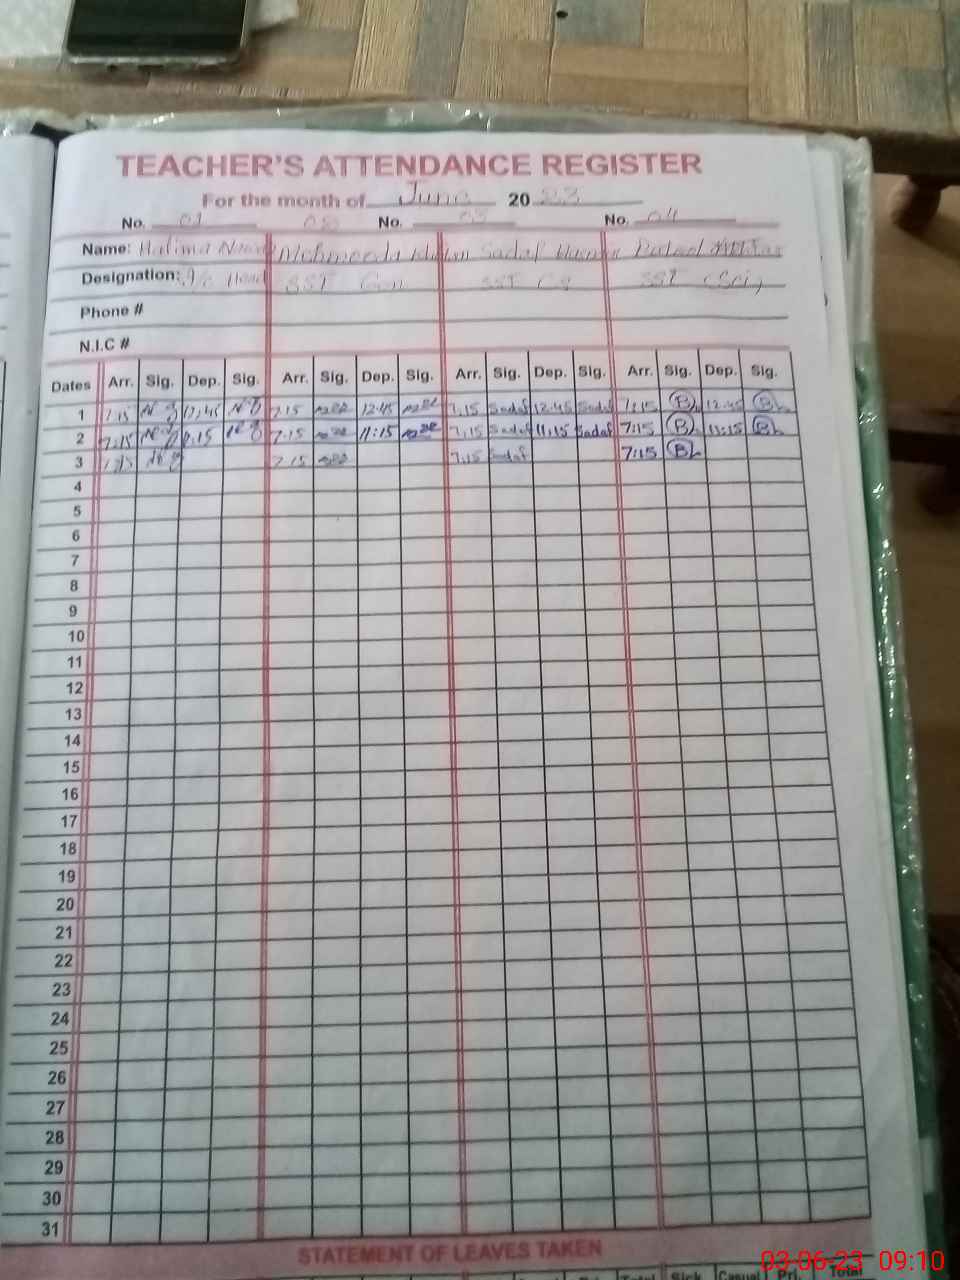 TEACHER'S ATTENDANCE REGISTER
For the month of June 2023
No. 01 02 No. 03 No. 04
Name: Halima Mehmooda Sadaf
Designation: I/C Head SST Gen SST CS SST (Sci)
Phone #
N.I.C #
Dates Arr. Sig. Dep. Sig. Arr. Sig. Dep. Sig. Arr. Sig. Dep. Sig. Arr. Sig. Dep. Sig.
1 7:15 12:45 7:15 12:45 7:15 Sadaf 12:45 Sadaf 7:15 12:45
2 7:15 7:15 11:15 7:15 Sadaf 11:15 Sadaf 7:15 11:15
3 7:15 7:15 7:15 Sadaf 7:15
4
5
6
7
8
9
10
11
12
13
14
15
16
17
18
19
20
21
22
23
24
25
26
27
28
29
30
31
STATEMENT OF LEAVES TAKEN
Total Sick Casual Pri. Total
03-06-23 09:10